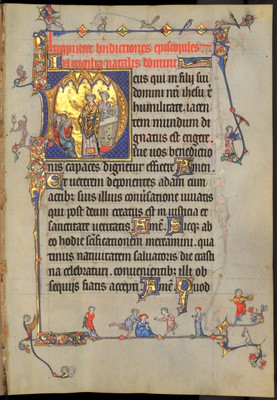 Incipiunt benedictiones episcopales
In vigilia natalis domini
eus qui in filij sui
domini nr̄i ihesu x̄
humilitate iacen
tem mundum di
gnatus est erigere
sue uos benedictio
nis capaces dignetur efficere Amen.
Et ueterem deponentes adam cum
actibꝫ suis illius conūsatione uiuatis
qui post deum creatus est in iusticia et
sanctitate ueritatis Amē. Sicqꝫ ab
eo hodie sc̄ificationem mereamini. qua
tinus natiuitatem saluatoris die crasti
na celebraturi. conuenientibꝫ illi ob
sequijs fiatis accepti Amē. Quod